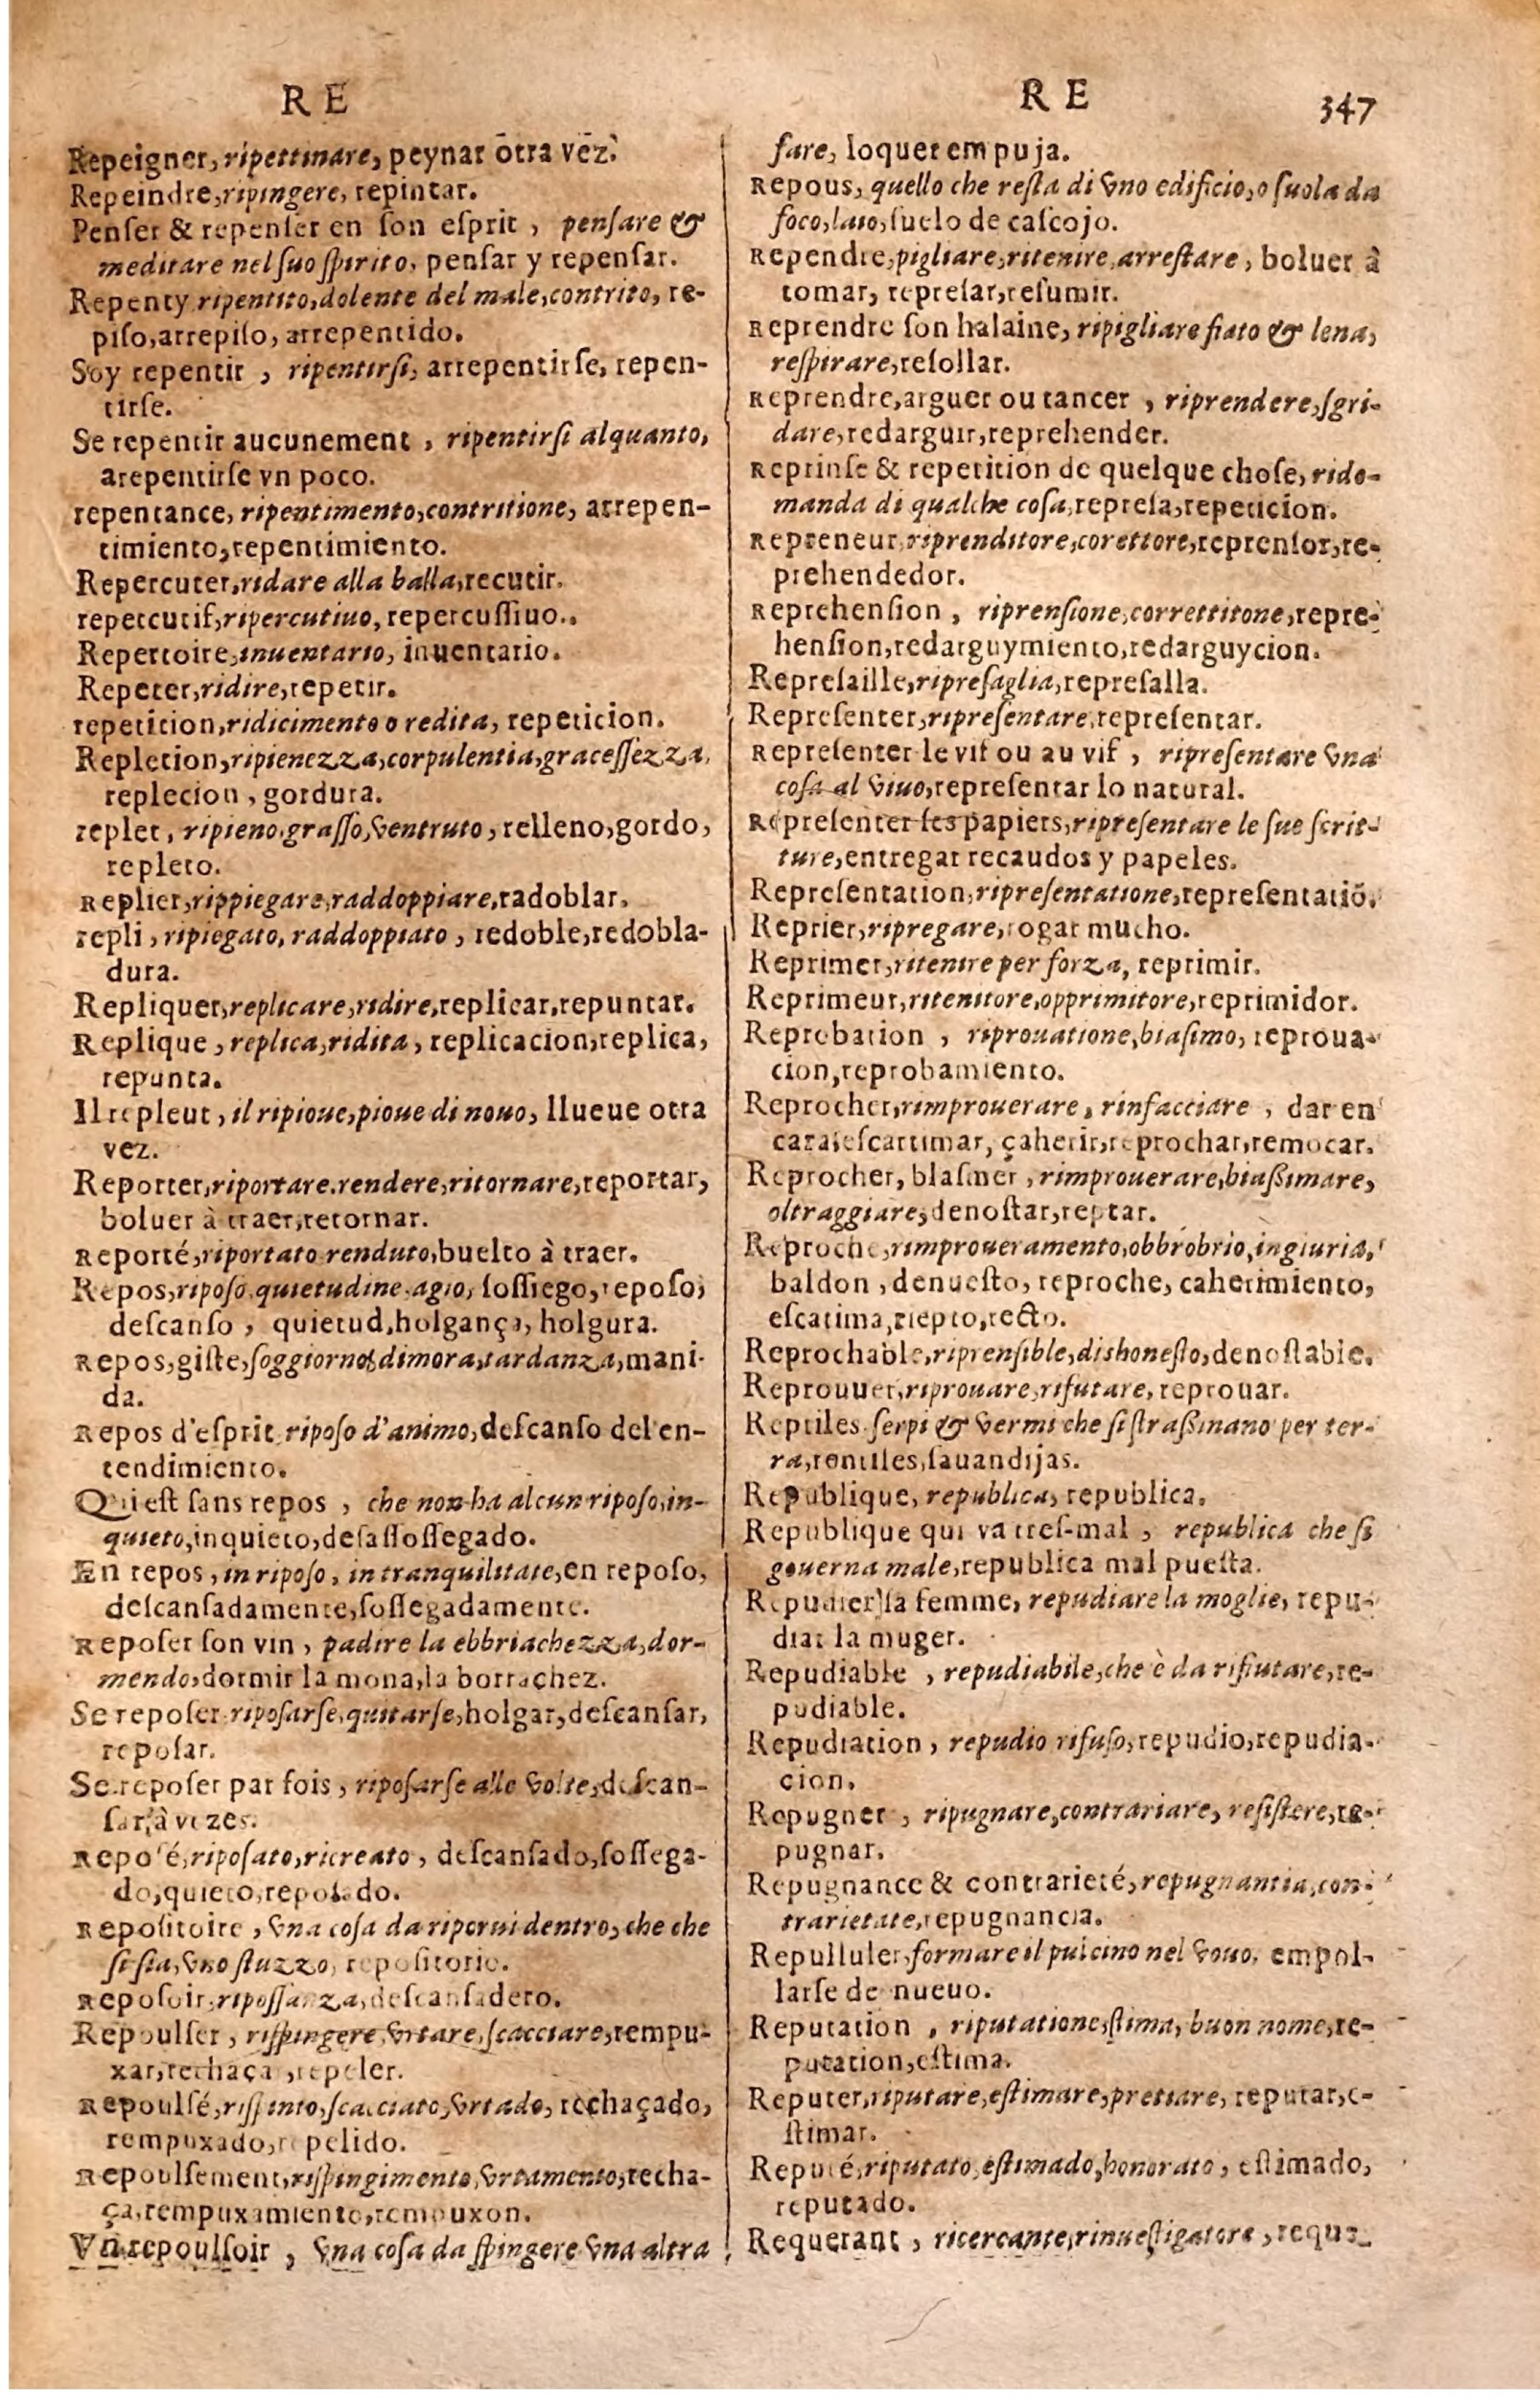 RE
Repeigner, ripettinare, peynar ōtra vēz.
Repeindre, ripingere, repintar.
Penser & repenser en son esprit, pensare &
meditare nel suo spirito, pensar y repensar.
Repenty ripentito, dolente del male, contrito, re-
piso, arrepiso, arrepentido.
Soy repentir, ripentirsi, arrepentirse, repen-
tirse.
Se repentir aucunement, ripentirsi alquanto,
arepentirse vn poco.
repentance, ripentimento, contritione, arrepen-
timiento, repentimiento.
Repercuter, ridare alla balla, recutir.
repercutif, ripercutiuo, repercussiuo.
Repertoire, inuentario, inuentario.
Repeter, ridire, repetir.
repetition, ridicimento o redita, repeticion.
Repletion, ripienezza, corpulentia, gracessezza,
replecion, gordura.
replet, ripieno, grasso, ventruto, relleno, gordo,
repleto.
Replier, rippiegare, raddoppiare, radoblar.
repli, ripiegato, raddoppiato, redoble, redobla-
dura.
Repliquer, replicare, ridire, replicar, repuntar.
Replique, replica, ridita, replicacion, replica,
repunta.
Il repleut, il ripioue, pioue di nouo, llueue otra
vez.
Reporter, riportare, rendere, ritornare, reportar,
boluer à traer, retornar.
Reporté, riportato renduto, buelto à traer.
Repos, riposo, quietudine, agio, sossiego, reposo,
descanso, quietud, holgança, holgura.
Repos, giste, soggiorno, dimora, tardanza, mani-
da.
Repos d'esprit, riposo d'animo, descanso del en-
tendimiento.
Qui est sans repos, che non ha alcun riposo, in-
quieto, inquieto, desassossegado.
En repos, in riposo, in tranquilitate, en reposo,
descansadamente, sossegadamente.
Reposer son vin, padire la ebbriachezza, dor-
mendo, dormir la mona, la borrachez.
Se reposer, riposarse, quitarse, holgar, descansar,
reposar.
Se reposer par fois, riposarse alle volte, descan-
sar, à vezes.
Reposé, riposato, ricreato, descansado, sossega-
do, quieto, reposado.
Repositoire, vna cosa da riporui dentro, che che
si sia, vno stuzzo, repositorio.
Reposoir, ripossanza, descansadero.
Repoulser, rispingere, vrtare, scacciare, rempu-
xar, rechaça, repeler.
Repoulsé, rispinto, scacciato, vrtado, rechaçado,
rempuxado, repelido.
Repoulsement, rispingimento, vrtamento, recha-
ça, rempuxamiento, rempuxon.
Vn repoulsoir, vna cosa da spingere vna altra
RE 347
fare, loquerempuja.
Repous, quello che resta di vno edificio, o suola da
foco, lato, suelo de cascojo.
Rependre, pigliare, ritenire, arrestare, boluer à
tomar, represar, resumir.
Reprendre son halaine, ripigliare fiato & lena,
respirare, resollar.
Reprendre, arguer ou tancer, riprendere, sgri-
dare, redarguir, reprehender.
Reprinse & repetition de quelque chose, rido-
manda di qualche cosa, represa, repeticion.
Repreneur, riprenditore, corettore, reprensor, re-
prehendedor.
Reprehension, riprensione, correttitone, repre-
hension, redarguymiento, redarguycion.
Represaille, ripresaglia, represalla.
Representer, ripresentare, representar.
Representer le vif ou au vif, ripresentare vna
cosa al viuo, representar lo natural.
Representer ses papiers, ripresentare le sue scrit-
ture, entregar recaudos y papeles.
Representation, ripresentatione, representatiō.
Reprier, ripregare, rogar mucho.
Reprimer, ritenire per forza, reprimir.
Reprimeur, ritenitore, opprimitore, reprimidor.
Reprobation, riprouatione, biasimo, reproua-
cion, reprobamiento.
Reprocher, rimprouerare, rinfacciare, dar en
cara, escartimar, çaherir, reprochar, remocar.
Reprocher, blasmer, rimprouerare, biaßimare,
oltraggiare, denostar, reptar.
Reproche, rimproueramento, obbrobrio, ingiuria,
baldon, denuesto, reproche, caherimiento,
escatima, riepto, recto.
Reprochable, riprensible, dishonesto, denostable.
Reprouuer, riprouare, rifutare, reprouar.
Reptiles, serpi & vermi che si straßinano per ter-
ra, rentiles, sauandijas.
Republique, republica, republica.
Republique qui va tres-mal, republica che si
gouerna male, republica mal puesta.
Repudier la femme, repudiare la moglie, repu-
diar la muger.
Repudiable, repudiabile, che è da rifiutare, re-
pudiable.
Repudiation, repudio rifuso, repudio, repudia-
cion.
Repugner, ripugnare, contrariare, resistere, re-
pugnar.
Repugnance & contrarieté, repugnantia, con-
trarietate, repugnancia.
Repulluler, formare il pulcino nel vouo, empol-
larse de nueuo.
Reputation, riputatione, stima, buon nome, re-
putation, estima.
Reputer, riputare, estimare, pretiare, reputar, e-
stimar.
Reputé, riputato, estimado, honorato, estimado,
reputado.
Requerant, ricercante, rinuestigatore, reque-